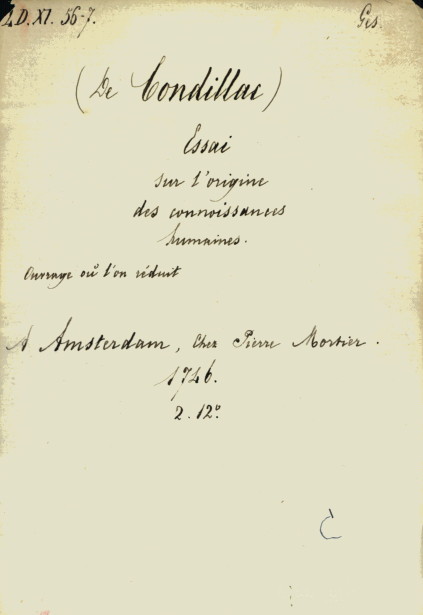 LD. XI. 56-7. Ges.
(De Condillac)
Essai
sur l'origine
des connoissances
humaines.
Ouvrage où l'on réduit
A Amsterdam, Chez Pierre Mortier.
1746.
2. 12°.